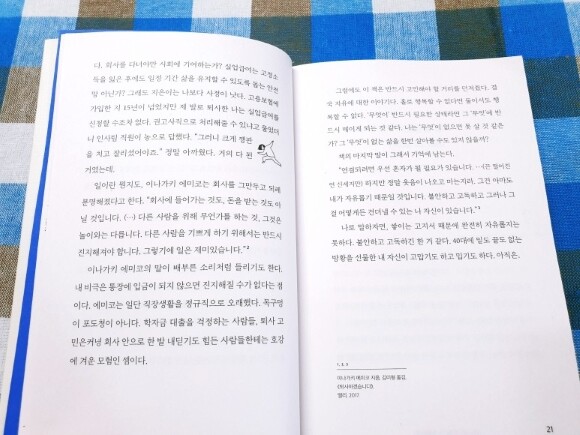 다. 회사를 다녀야만 사회에 기여하는가? 실업급여는 고정소
득을 잃은 후에도 일정 기간 삶을 유지할 수 있도록 돕는 안전
망 아닌가? 그래도 지은이는 나보다 사정이 낫다. 고용보험에
가입한 지 15년이 넘었지만 제 발로 퇴사한 나는 실업급여를
신청할 수조차 없다. 권고사직으로 처리해줄 수 있냐고 물었더
니 인사팀 직원이 농으로 답했다. "그러니 크게 깽판
을 치고 잘리셨어야죠." 정말 아까웠다. 거의 다 된
거였는데.
일이란 뭔지도, 이나가키 에미코는 회사를 그만두고 되레
분명해졌다고 한다. "회사에 들어가는 것도, 돈을 받는 것도 아
닐 것입니다. (…) 다른 사람을 위해 무언가를 하는 것, 그것은
놀이와는 다릅니다. 다른 사람을 기쁘게 하기 위해서는 반드시
진지해져야 합니다. 그렇기에 일은 재미있습니다."2
이나가키 에미코의 말이 배부른 소리처럼 들리기도 한다.
내 미국은 통장에 입금이 되지 않으면 진지해질 수가 없다는 점
이다. 에미코는 일단 직장생활을 정규직으로 오래했다. 목구멍
이 포도청이 아니다. 학자금 대출을 걱정하는 사람들, 퇴사 고
민은커녕 회사 안으로 한 발 내딛기도 힘든 사람들한테는 호강
에 겨운 모험인 셈이다.
그럼에도 이 책은 반드시 고민해야 할 거리를 던져준다. 결
국 자유에 대한 이야기다. 홀로 행복할 수 있다면 둘이서도 행
복할 수 있다. '무엇'이 반드시 필요한 상태라면 그 '무엇'에 반
드시 매이게 되는 것 같다. 나는 '무엇'이 없으면 못 살 것 같은
가? 그 '무엇'이 없는 삶을 한번 살아볼 수도 있지 않을까?
책의 마지막 말이 그래서 기억에 남는다.
나로 말하자면, 쌓이는 고지서 때문에 완전히 자유롭지는
못하다. 불안하고 고독하긴 한 거 같다. 40대에 밑도 끝도 없는
방황을 선물한 내 자신이 고맙기도 하고 밉기도 하다. 아직은.
이나가키 에미코 지음, 김미형 옮김,
《퇴사하겠습니다》,
엘리, 2017.
21